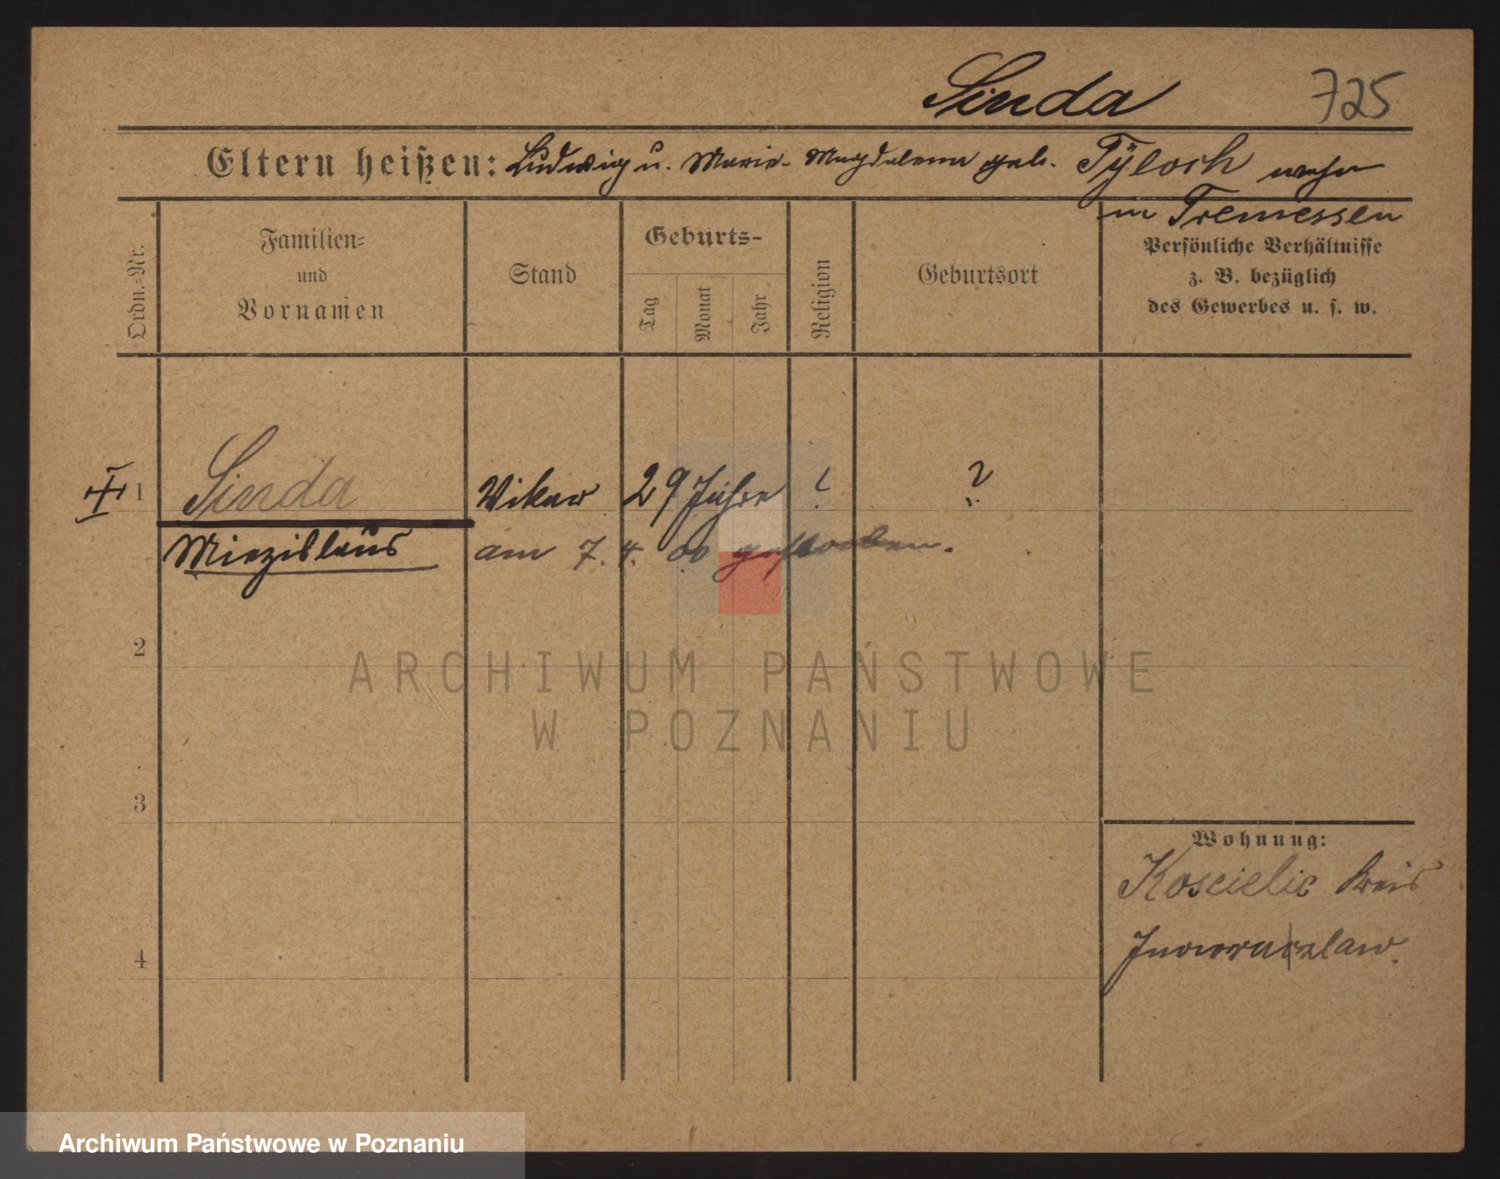 Sinda 725
Eltern heißen: Ludwig u. Marie-Magdalena geb. Tyloch wohn
in Tremessen
Ordn.-Nr.
Familien-
und
Vornamen
Stand
Geburts-
Tag
Monat
Jahr
Religion
Geburtsort
Persönliche Verhältnisse
z. B. bezüglich
des Gewerbes u. s. w.
1 Sinda Vikar 29 Jahre ? ?
Miezislaus am 7. 4. 00 gestorben.
2
3
4
Wohnung:
Koscielic Kreis
Inowrazlaw.
ARCHIWUM PAŃSTWOWE
W POZNANIU
Archiwum Państwowe w Poznaniu